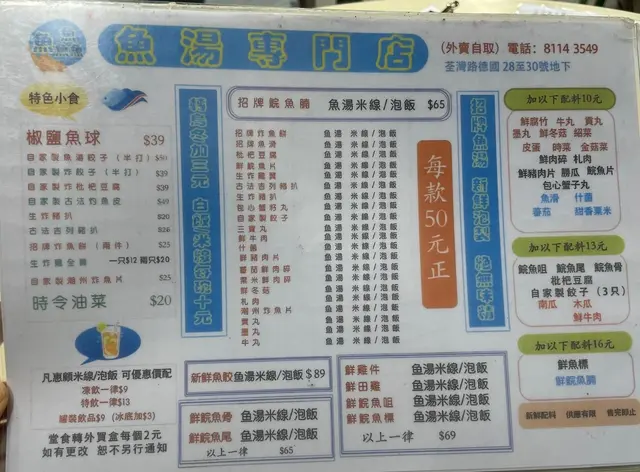 魚湯專門店
(外賣自取) 電話: 8114 3549
荃灣路德圍 28至30號地下
特色小食
椒鹽魚球 $39
自家製魚湯餃子 (半打)
自家製炸餃子 (半打) $39
自家製炸枇杷豆腐 $39
自家製古法釣魚皮 $49
生炸豬扒 $20
古法吉列豬扒 $26
招牌炸魚餅 (兩件) $25
生炸雞全翼 一只$12 兩只$20
自家製潮州炸魚片 $25
時令油菜 $20
凡惠顧米線/泡飯 可優惠價配
凍飲一律$9
特飲一律$13
罐裝飲品$9 (冰底加$3)
堂食轉外賣盒每個2元
如有更改 恕不另行通知
招牌鯇魚腩 魚湯米線/泡飯 $65
招牌炸魚餅 魚湯 米線/泡飯
招牌魚滑 魚湯 米線/泡飯
枇杷豆腐 魚湯 米線/泡飯
鮮鯇魚片 魚湯 米線/泡飯
生炸雞翼 魚湯 米線/泡飯
古法吉列豬扒 魚湯 米線/泡飯
生炸豬扒 魚湯 米線/泡飯
包心蟹籽丸 魚湯 米線/泡飯
自家製餃子 魚湯 米線/泡飯
三寶丸 魚湯 米線/泡飯
鮮牛肉 魚湯 米線/泡飯
什菌 魚湯 米線/泡飯
鮮豬肉片 魚湯 米線/泡飯
蕃茄鮮肉碎 魚湯 米線/泡飯
粟米鮮肉碎 魚湯 米線/泡飯
鮮冬菇 魚湯 米線/泡飯
札肉 魚湯 米線/泡飯
潮州炸魚片 魚湯 米線/泡飯
貢丸 魚湯 米線/泡飯
墨丸 魚湯 米線/泡飯
牛丸 魚湯 米線/泡飯
每款50元正
招牌魚湯 新鮮泡製 絕無味精
新鮮魚鮫 魚湯米線/泡飯 $89
鮮鯇魚骨 魚湯米線/泡飯
鮮鯇魚尾 魚湯米線/泡飯
以上一律 $65
鮮雞件 魚湯米線/泡飯
鮮田雞 魚湯米線/泡飯
鮮鯇魚咀 魚湯米線/泡飯
鮮鯇魚㯹 魚湯米線/泡飯
以上一律 $69
加以下配料10元
鮮腐竹 牛丸 貢丸
墨丸 鮮冬菇 紹菜
皮蛋 時菜 金菇菜
鮮肉碎 札肉
鮮豬肉片 勝瓜 鯇魚片
包心蟹子丸
魚滑 什菌
蕃茄 甜香粟米
加以下配料13元
鯇魚咀 鯇魚尾 鯇魚骨
枇杷豆腐
自家製餃子 (3只)
南瓜 木瓜
鮮牛肉
加以下配料16元
鮮魚㯹
鮮鯇魚腩
新鮮配料 供應有限 售完即止